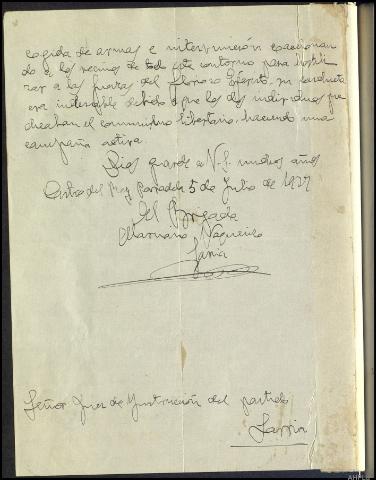 cogida de armas e intervención coaccionan
do a los vecinos de todo este contorno para hosti
zar a las fuerzas del Glorioso Ejército. su conducta
era intolerable debido a que los dos individuos pre
dicaban el comunismo libertario, haciendo una
campaña activa.
Dios guarde a V.S. muchos años
Castro del Rey 5 de Julio de 1937
El Brigada
Mariano
Señor Juez de Instrucción del partido
Sarria